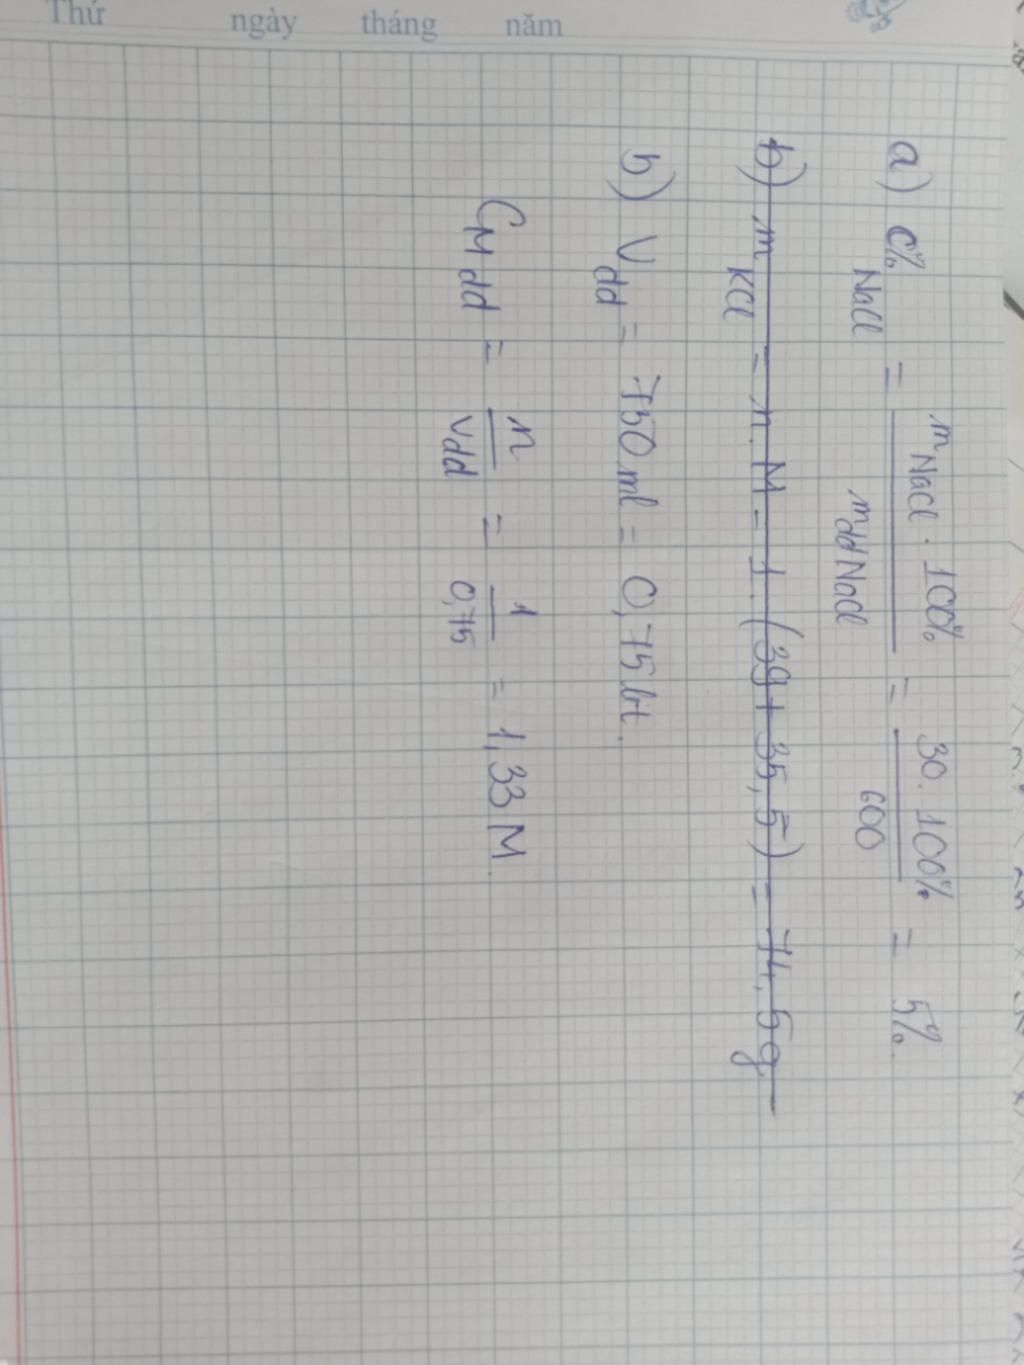 Thứ ngày tháng năm
a) C%NaCl = mNaCl . 100% / mddNaCl = 30 . 100% / 600 = 5%.
b) mKCl = n . M = 1 . (39 + 35,5) = 74,5g
b) Vdd = 750 ml = 0,75 lit.
CMdd = n / Vdd = 1 / 0,75 = 1,33 M.